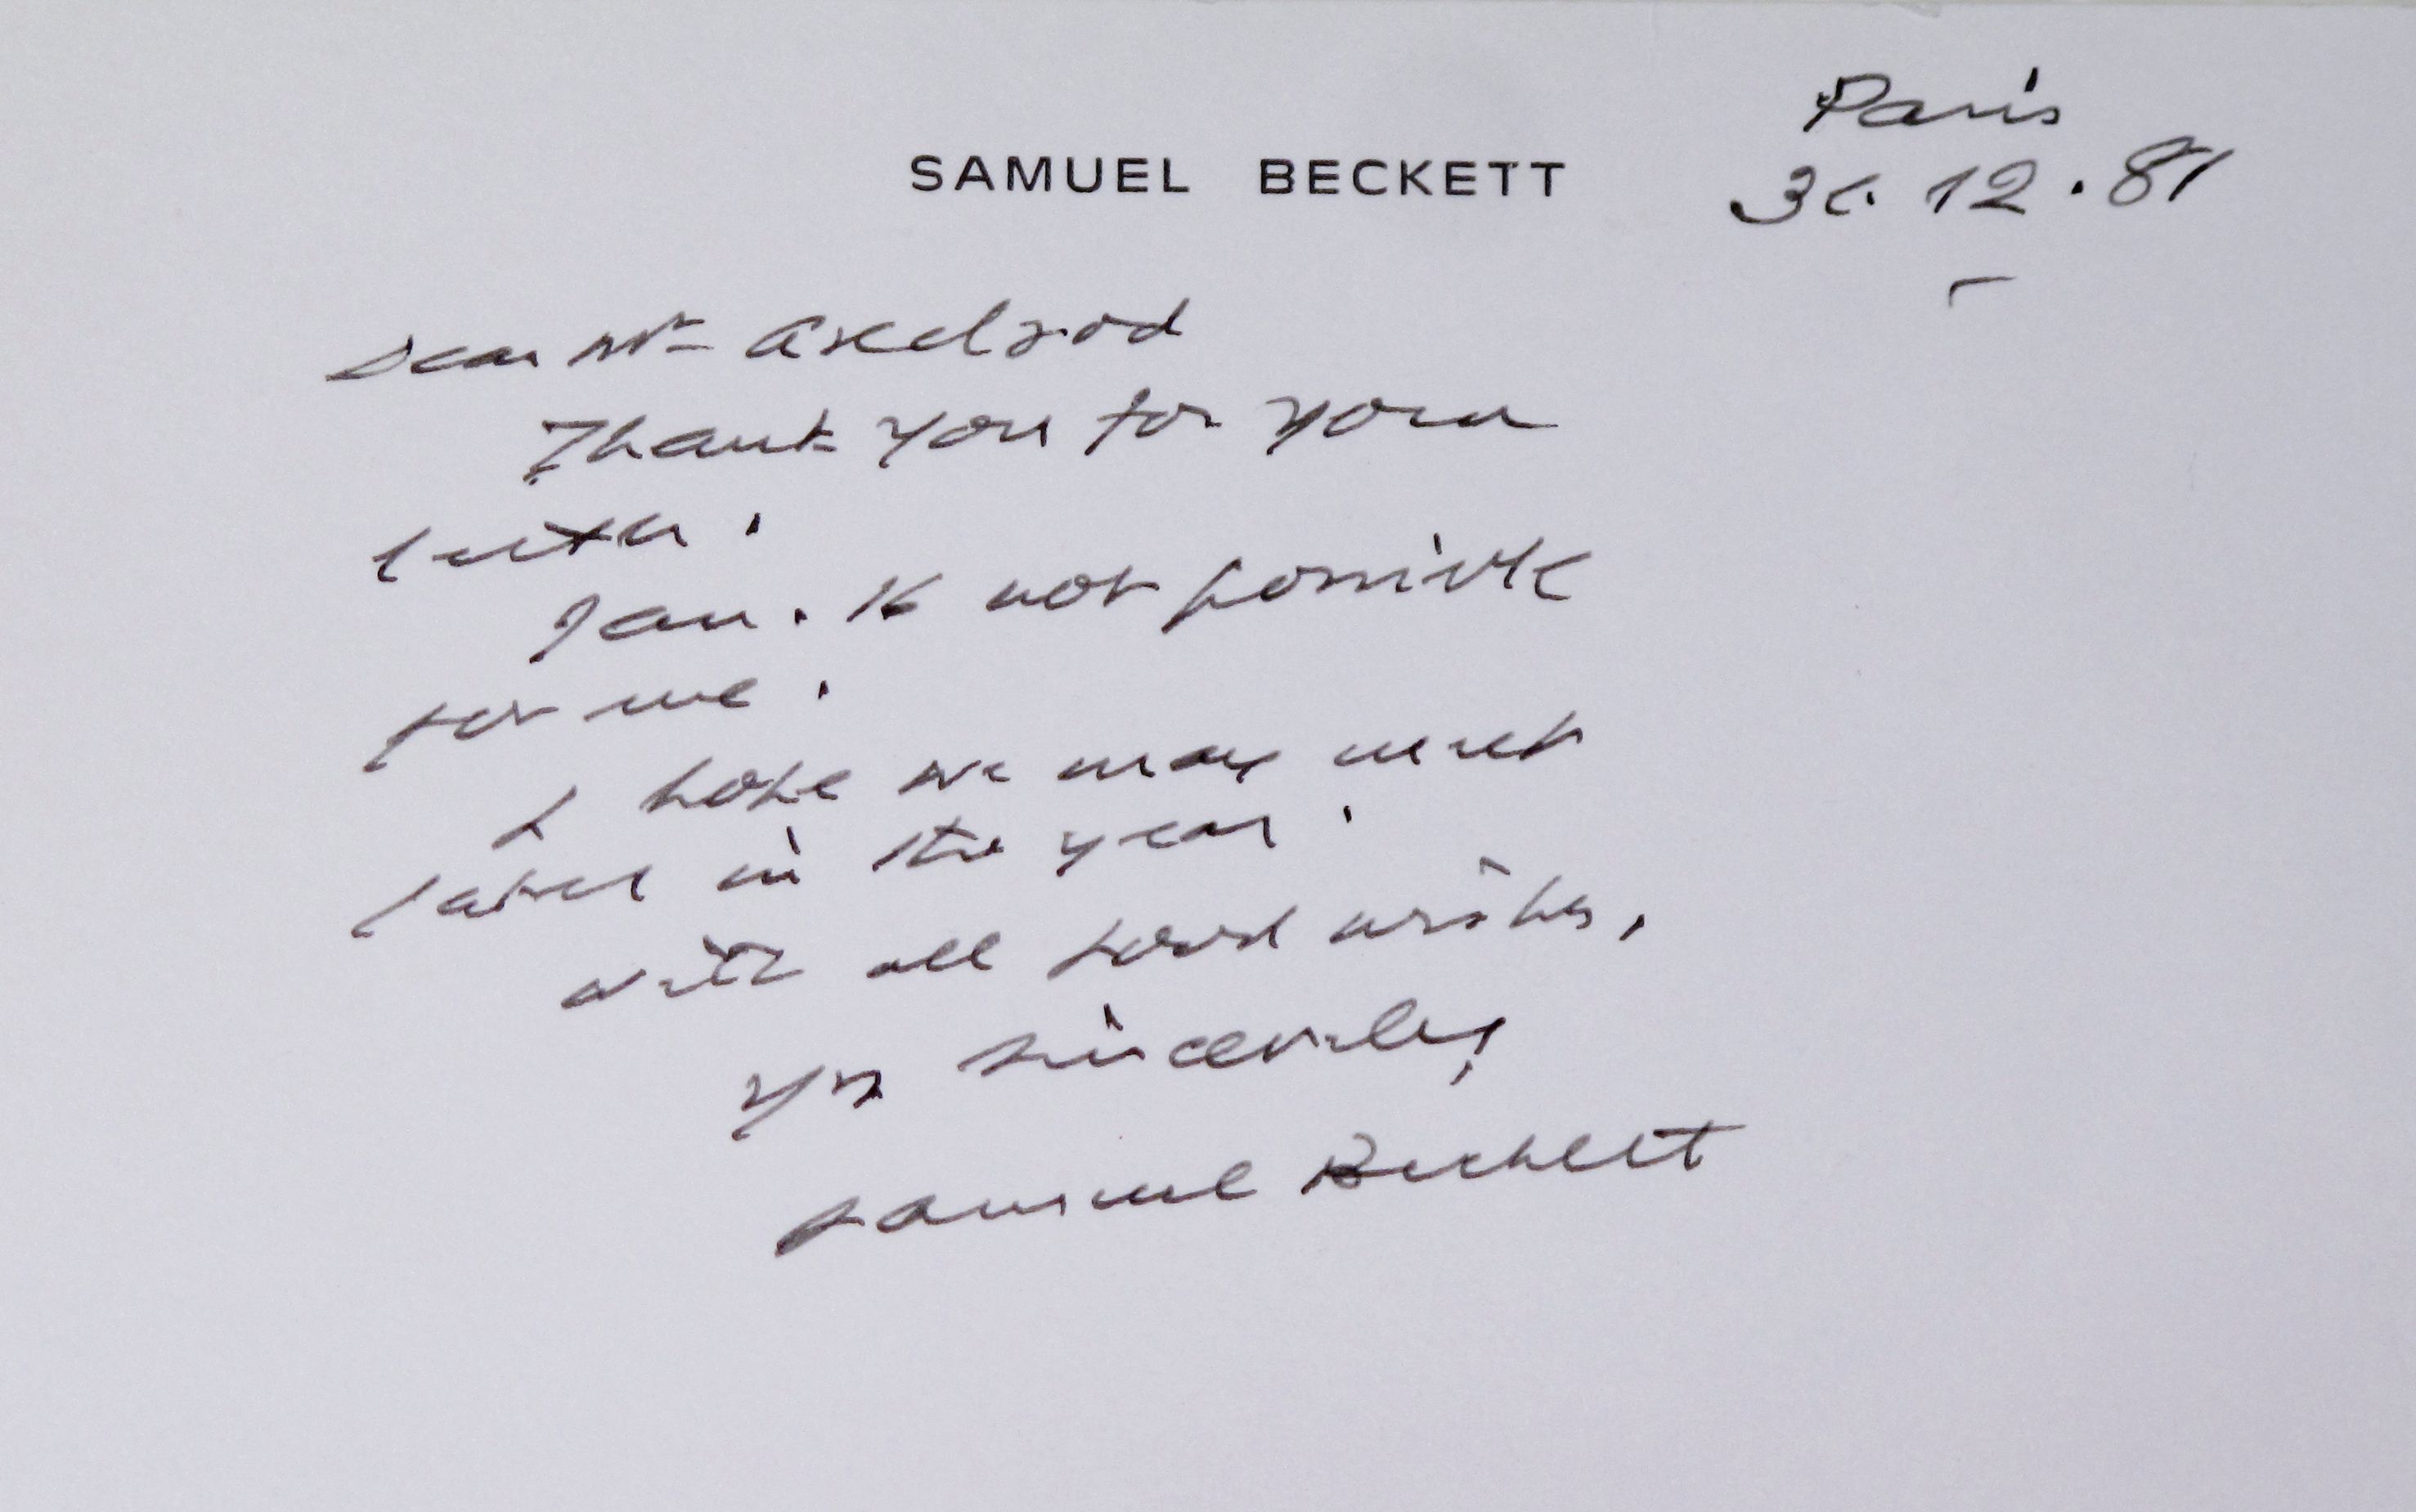 Paris
SAMUEL BECKETT
30.12.81
Dear Mr Axelrod
Thank you for your
letter.
Jan. is not possible
for me.
I hope we may meet
later in the year.
With all good wishes,
Yrs sincerely,
Samuel Beckett